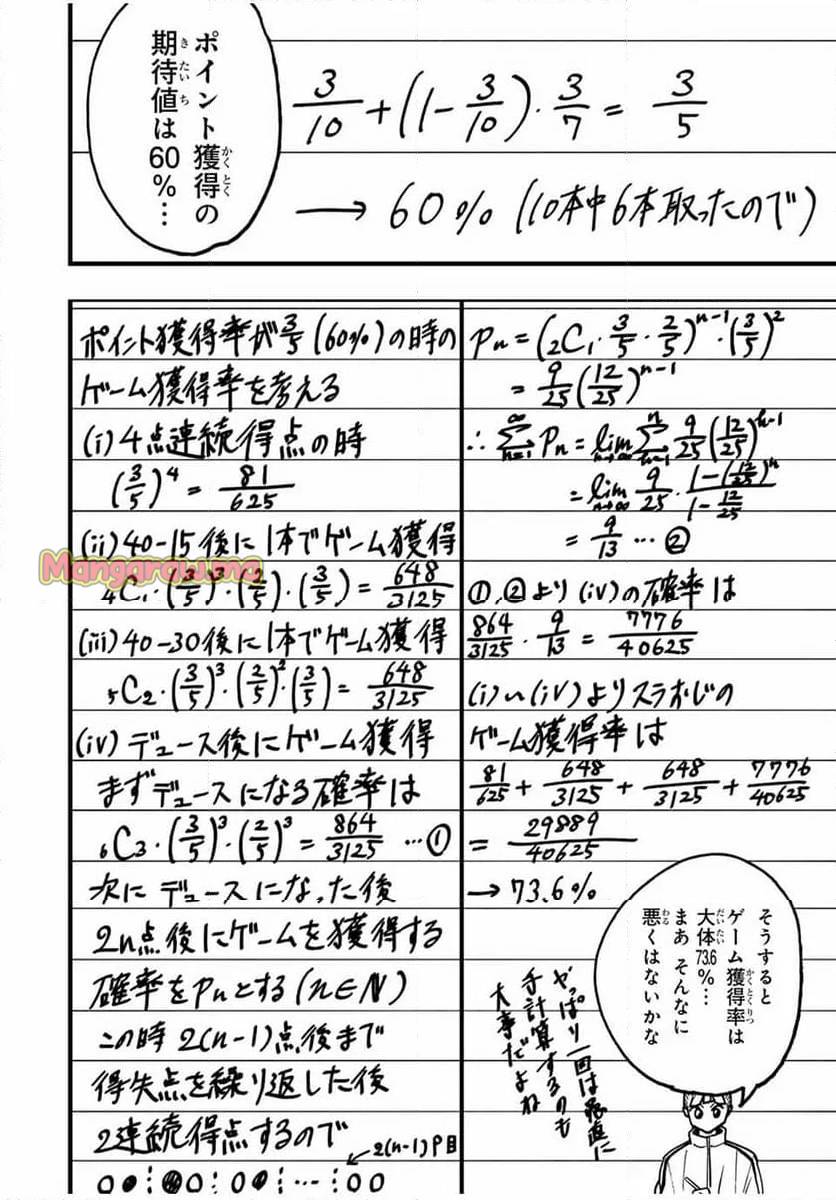 ポイント獲得の
期待値は
60%…
3/10+(1-3/10)・3/7=3/5
→60%(10本中6本取ったので)
ポイント獲得率が3/5(60%)の時の
ゲーム獲得率を考える
(i)4点連続得点の時
(3/5)^4=81/625
(ii)40-15後に1本でゲーム獲得
4C1・(3/5)^3・(2/5)・(3/5)=648/3125
(iii)40-30後に1本でゲーム獲得
5C2・(3/5)^3・(2/5)^2・(3/5)=648/3125
(iv)デュース後にゲーム獲得
まずデュースになる確率は
6C3・(3/5)^3・(2/5)^3=864/3125…①
次にデュースになった後
2n点後にゲームを獲得する
確率をPnとする(n∈N)
この時2(n-1)点後まで
得失点を繰り返した後
2連続得点するので
2(n-1)P目
○●┊●○┊○●┊…┊○○
Pn=(2C1・3/5・2/5)^n-1・(3/5)^2
=9/25(12/25)^n-1
∴∞Σn=1 Pn=lim n→∞ nΣk=1 9/25(12/25)^k-1
=lim n→∞ 9/25・1-(12/25)^n/1-12/25
=9/13…②
①,②より(iv)の確率は
864/3125・9/13=7776/40625
(i)〜(iv)よりスラおじの
ゲーム獲得率は
81/625+648/3125+648/3125+7776/40625
=29889/40625
→73.6%
そうすると
ゲーム獲得率は
大体73.6%…
まあ そんなに
悪くはないかな
やっぱり一回は愚直に
手計算するのも
大事だよね
Mangaraw.ma